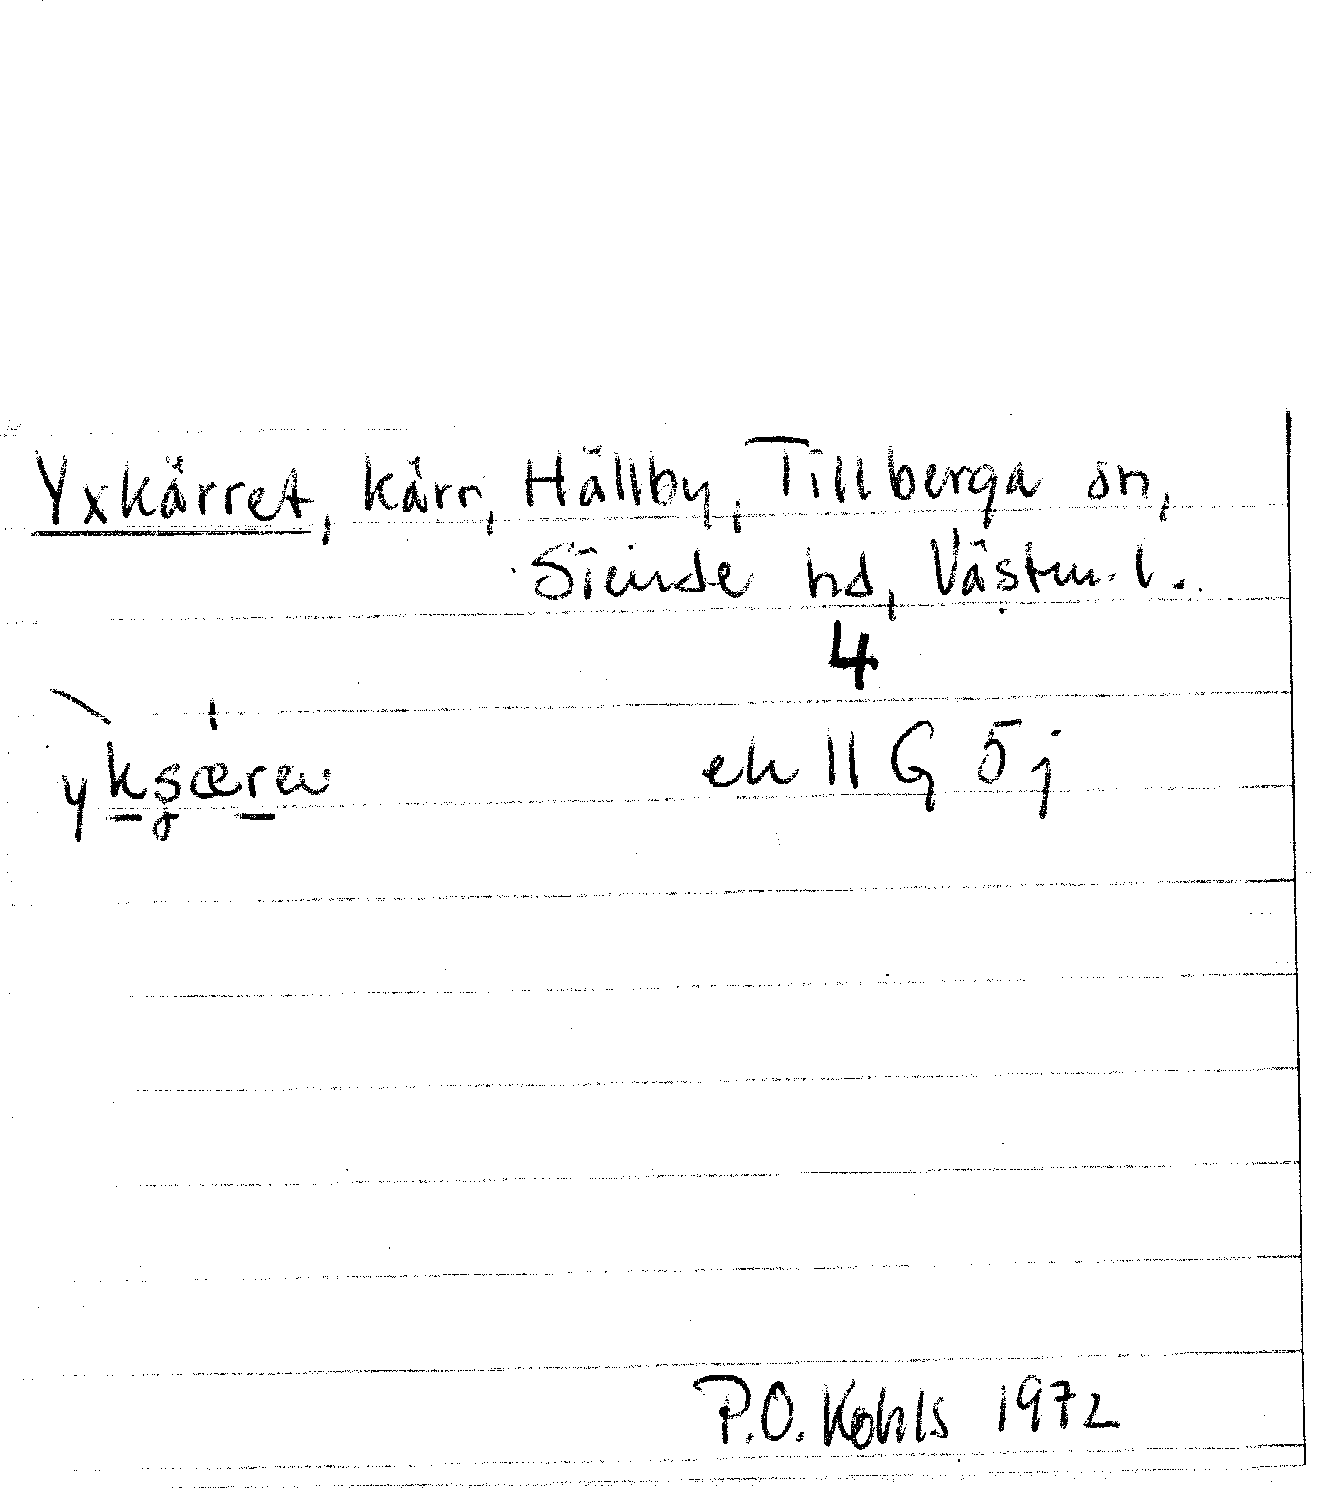 Yxkärret, kärr, Hällby, Tillberga sn,
Siende hd, Västm. l.
4
yksæren
ek 11 G 5 j
P.O. Kohls 1972